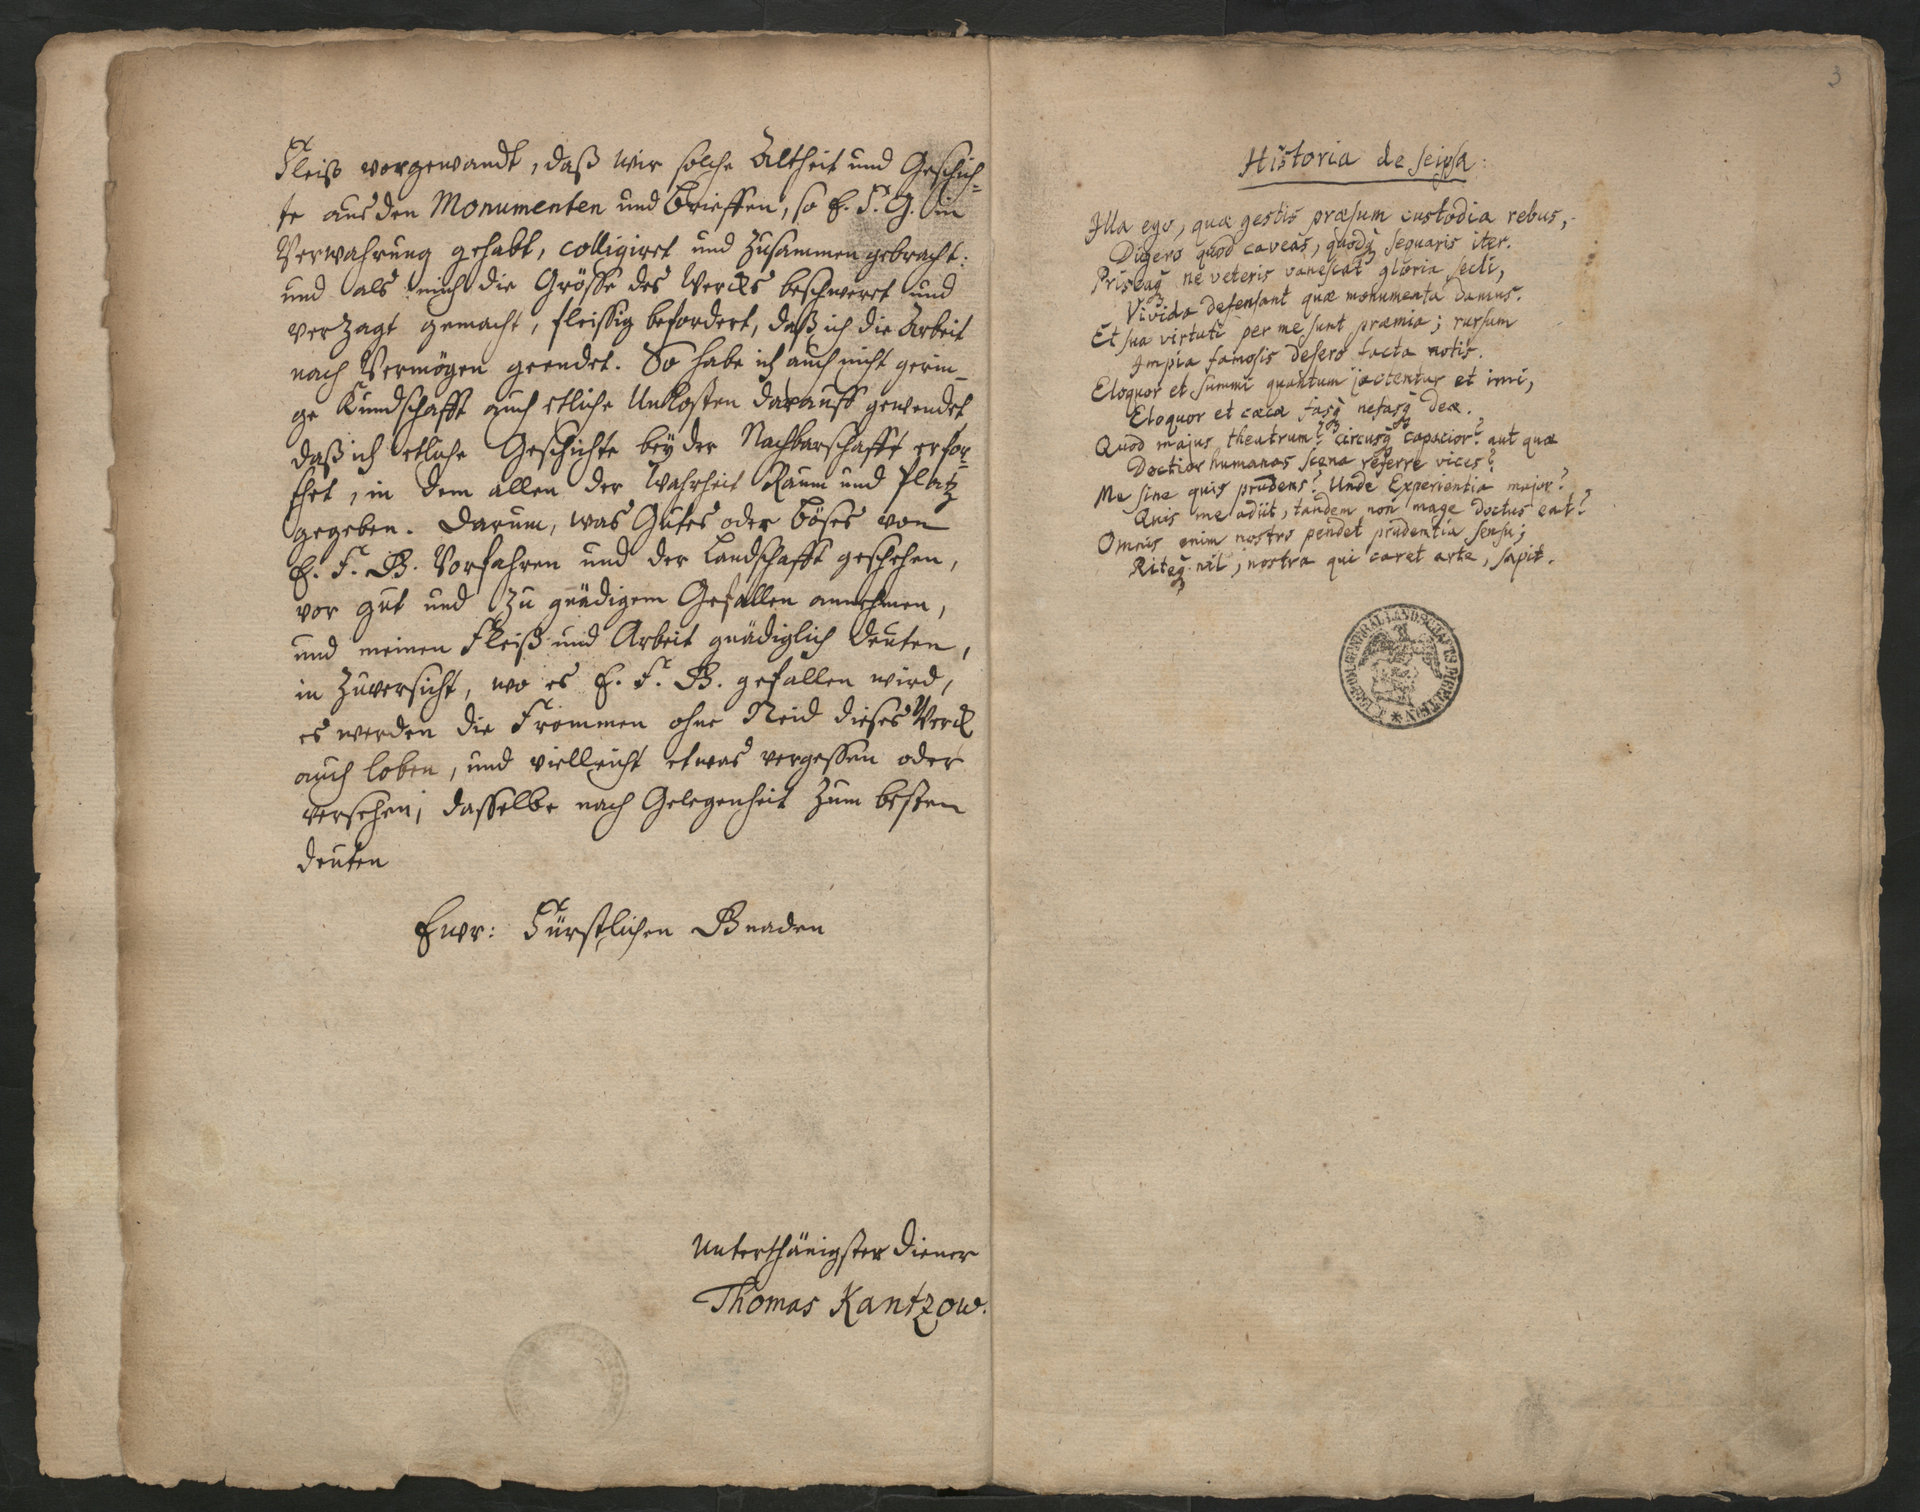 Fleiß vorgewandt, daß wir solche Altheit und Geschich-
te aus den Monumenten und Brieffen, so E. F. G. in
Verwahrung gehabt, colligiret und zusammen gebracht:
und als mich die Grösse des Wercks beschweret und
verzagt gemacht, fleissig befordert, daß ich die Arbeit
nach Vermögen geendet. So habe ich auch nicht gerin-
ge Kundschafft auch etliche Unkosten darauff gewendet
daß ich etliche Geschichte bey der Nachbarschafft erfor-
schet, in dem allen der Wahrheit Raum und Platz
gegeben. Darum, was Gutes oder böses von
E. F. G. Vorfahren und der Landschafft geschehen,
vor gut und zu gnädigem Gefallen annehmen,
und meinen Fleiß und Arbeit gnädiglich deuten,
in Zuversicht, wo es E. F. G. gefallen wird,
es werden die Frommen ohne Neid dieses Werck
auch loben, und vielleicht etwas vergessen oder
versehen, dasselbe nach Gelegenheit zum besten
deuten
Ewr: Fürstlichen Gnaden
Unterthänigster Diener
Thomas Kantzow.
3
Historia de seipsa:
Illa ego, quæ gestis præsum custodia rebus,
Digero quod caveas, quodq sequaris iter.
Priscaq ne veteris vanescat gloria secli,
Vivida defensant quæ monumenta damus.
Et sua virtuti per me sunt præmia; rursum
Impia famosis desero facta notis.
Eloquor et summi quantum jactentur et imi,
Eloquor et cæcæ fasq nefasq deæ.
Quod majus theatrum? circusq capacior? aut quæ
Doctior humanas scena referre vices?
Me sine quis prudens? Unde Experientia major?
Quis me adiit, tandem non mage doctus eat?
Omnis enim nostro pendet prudentia sensu;
Riteq nil, nostra qui caret arte, sapit.